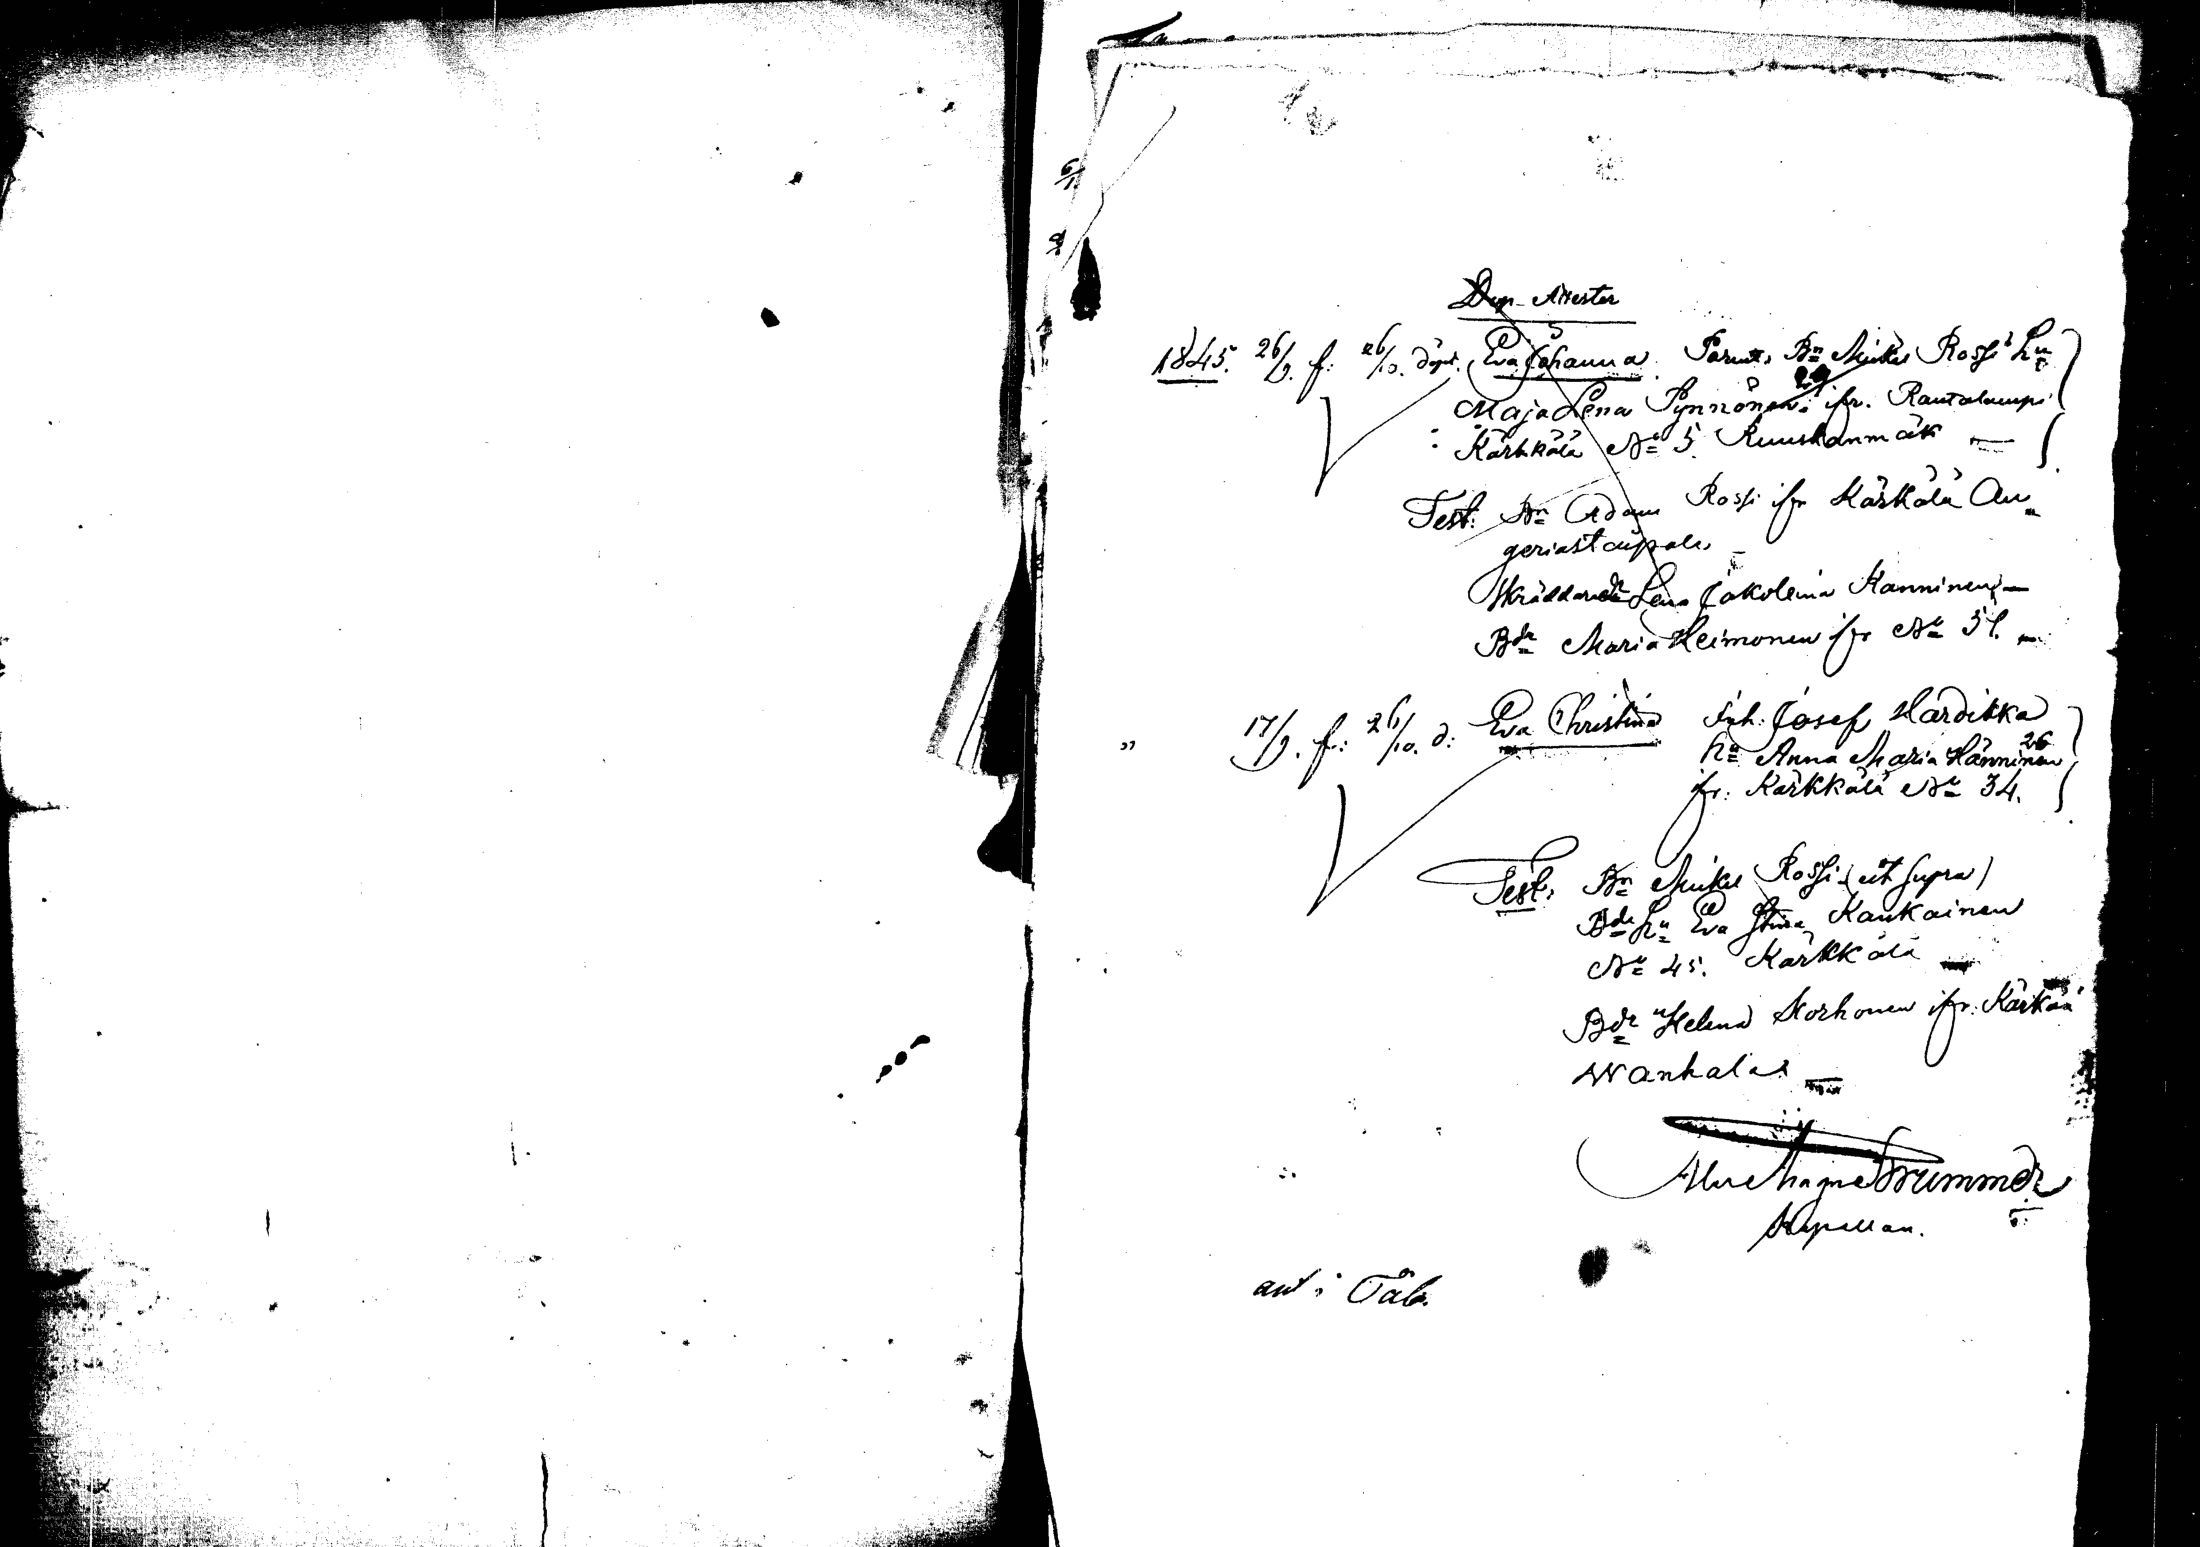 Dop-Attester
1845. 26/9. f: 26/10. döpt. Eva Johanna. Parent. Bn Mickel Rossi Hu 29
Maja Lena Pynnönen ifr. Rautalampi
Kärkkälä No 5. Ruuskanmäki —
Test: Bn Adam Rossi ifr Kärkälä An-
geriastaipale.
Skräddaredr Lena Jakobina Kanninen —
Bdr Maria Heimonen ifr No 51. —
" 17/9. f: 26/10. d: Eva Christina Inh: Josef Hardikka
hu Anna Maria Hänninen 26
ifr: Karkkälä No 34.
Test: Bn Mickel Rossi (ut supra)
Bde hu Eva Stina Kaukainen
No 45. Karkkälä —
Bdr Helena Korhonen ifr: Kärkkä
Wankala —
Brummer
Kapellan.
ant i Tab.